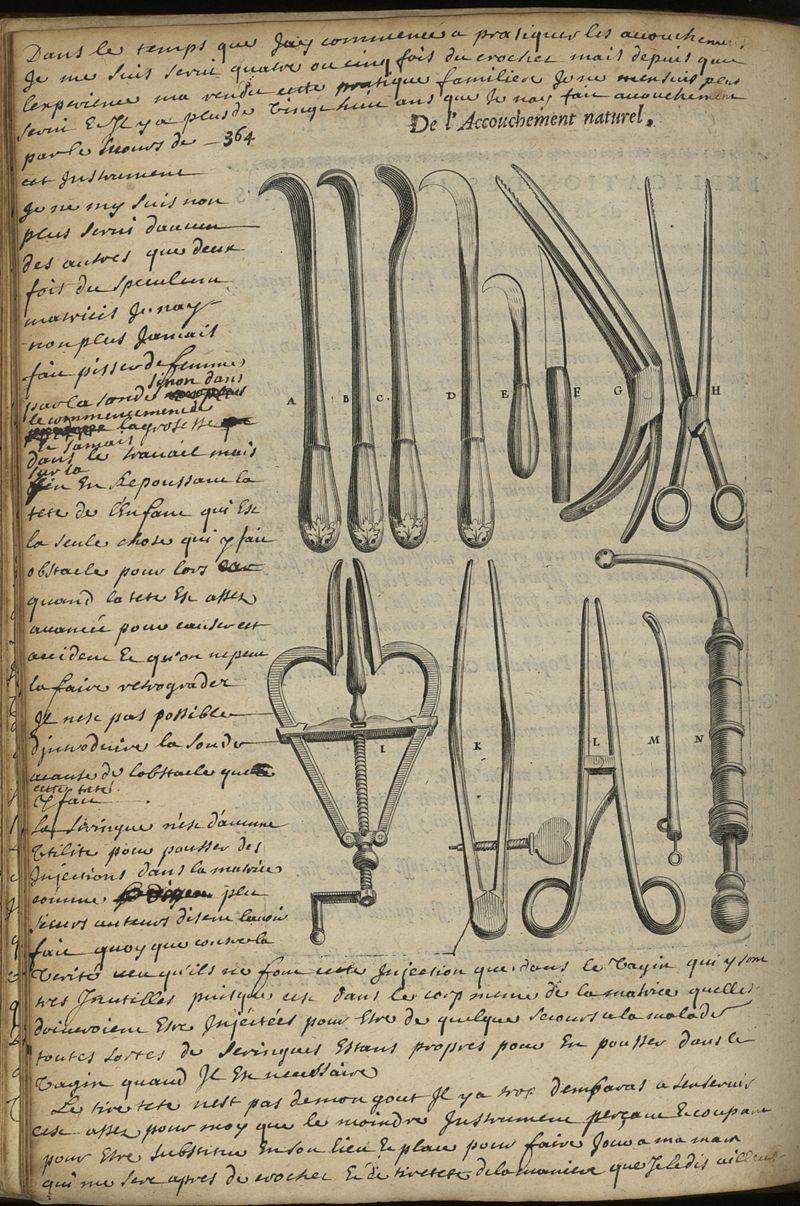 Dans le temps que Jay commencé a pratiquer les accouchemens
Je me suis servi quatre ou cinq fois du crochet mais depuis que
lexperience ma rendu cette pratique familiere Je ne men suis plus
servi Et Il y a plus de vingt huit ans que Je nay fait accouchement
De l'Accouchement naturel.
par le secours de - 364
cet Instrument
Je ne my suis non
plus servi daucun
des autres que deux
fois du speculum
matricis Je nay
non plus Jamais
fait pisser de femmes
par la sonde sinon dans
le commencement de
la grossesse
et Jamais
dans le travail mais
sur la
fin En Repoussant la
tete de lEnfant qui Est
la seule chose qui y fait
obstacle pour lors car
quand la tete Est assez
avancée pour causer cet
accident Et qu'on ne peut
la faire retrograder
Il nest pas possible
dJntroduire la sonde
a cause de lobstacle que
cette tete
y fait
La seringue n'est d'aucune
Vtilité pour pousser des
Injections dans la matrice
comme plu
sieurs auteurs disent lavoir
fait quoy que contre la
Verité veu qu'ils ne font cette Injection que dans le Vagin qui y sont
tres Inutilles puisque cest dans le corp meme de la matrice quelles
devieroient Etre Injectées pour Etre de quelque secours a la malade
toutes sortes de seringues Estans propres pour En pousser dans le
Vagin quand Il Est necessaire
Le tire tete nest pas de mon gout Il y a trop dembaras a sen servir
cest assez pour moy que le moindre Instrument perçant Et coupant
pour Etre substitué En son lieu Et place pour faire Jour a ma main
qui me sert apres de crochet Et de tire tete de la maniere que Je le dis ailleurs
A B C D E F G H
I K L M N